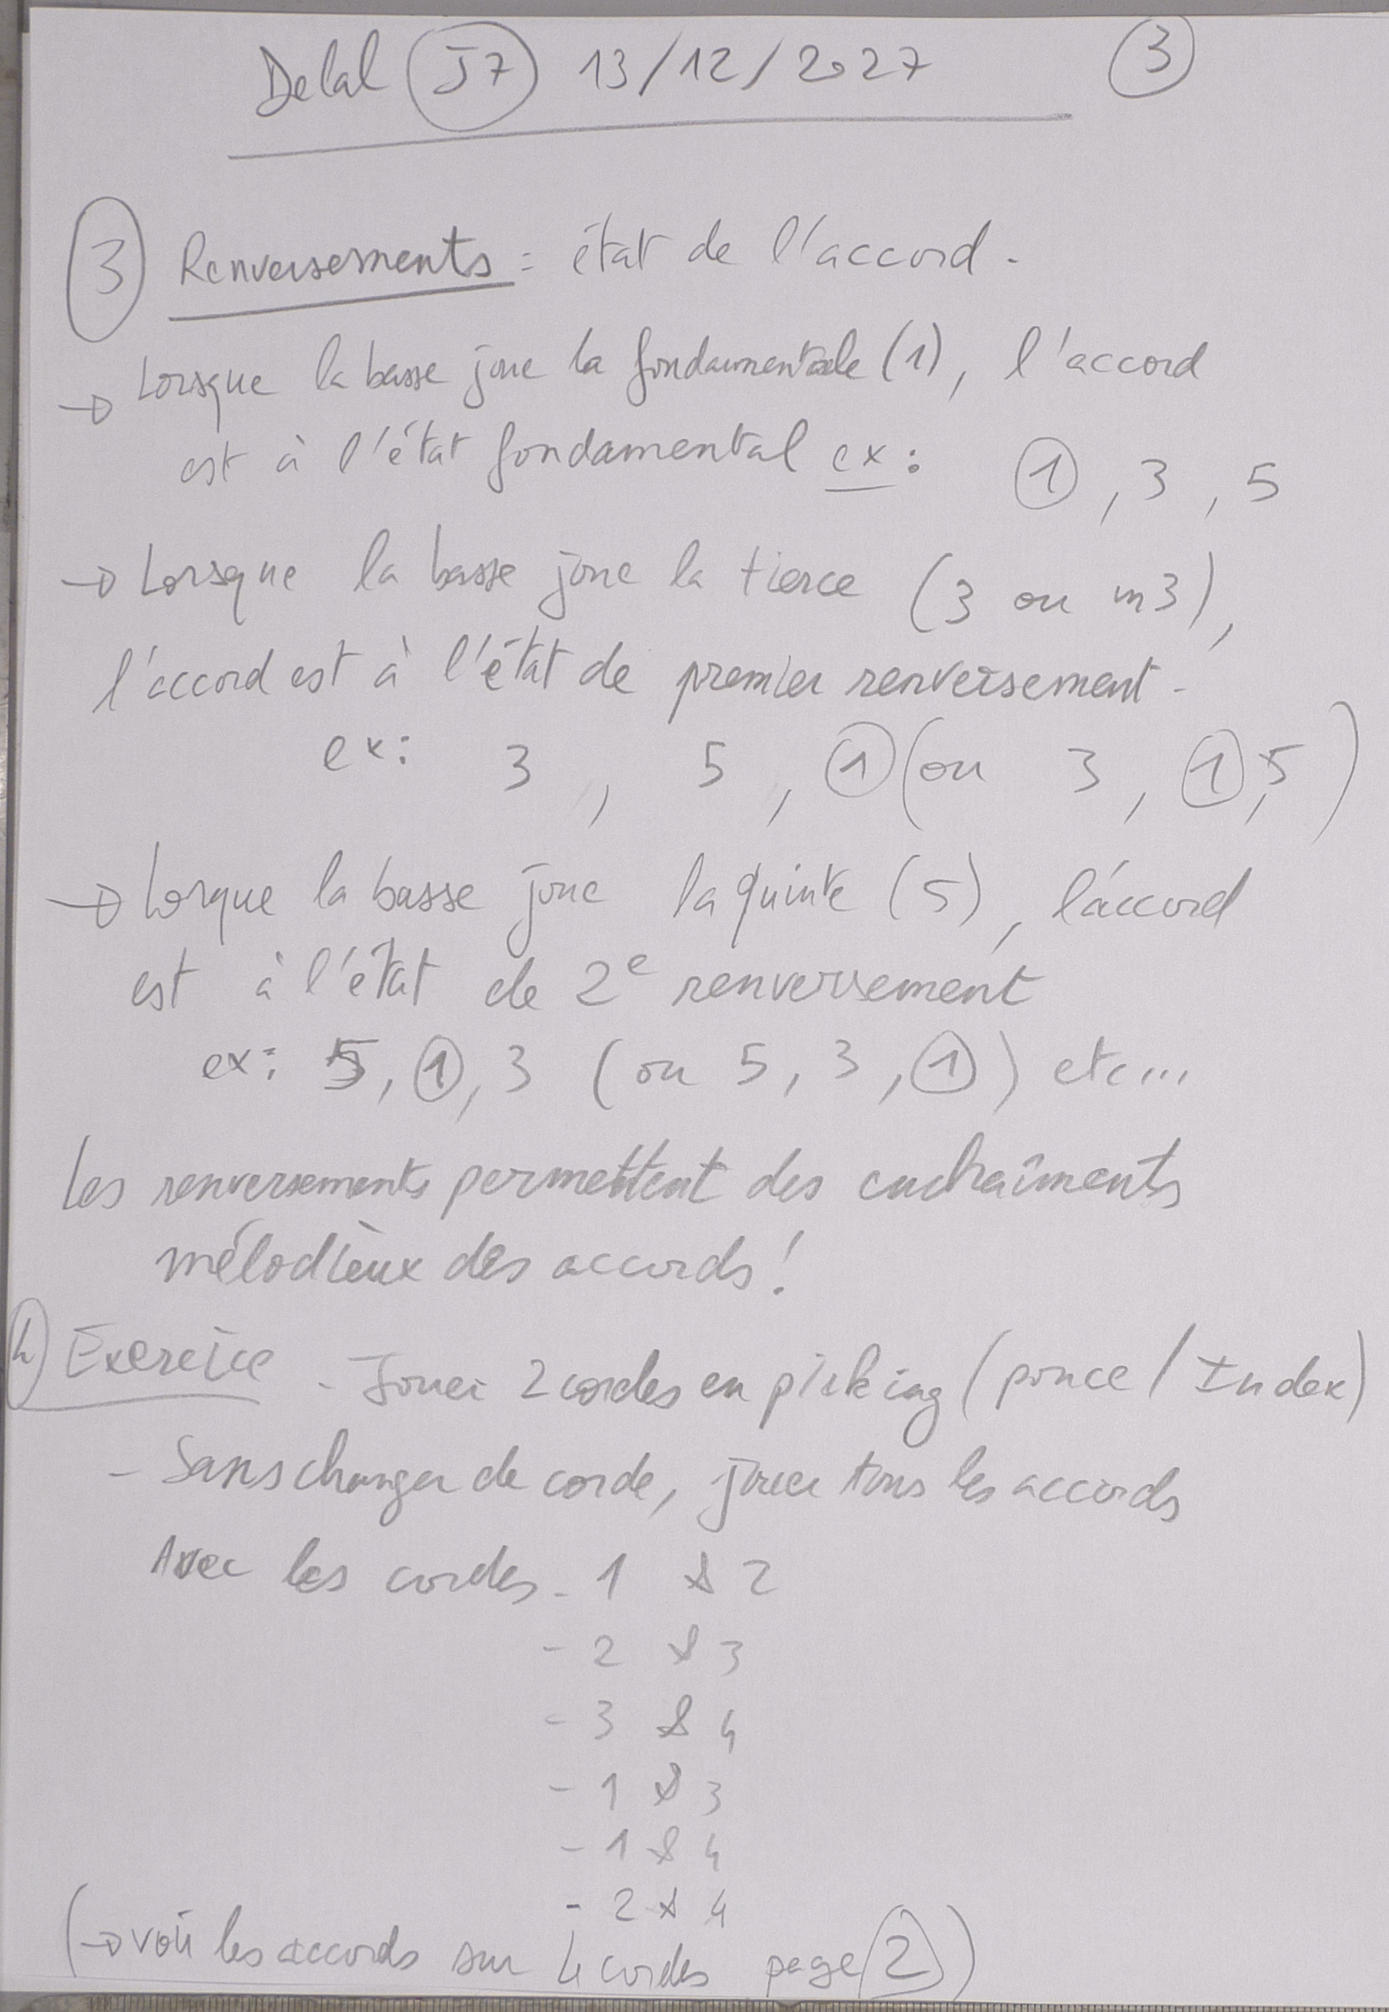 Delal J7 13/12/2027 3
3 Renversements = état de l'accord.
→ Lorsque la basse joue la fondamentale (1), l'accord
est à l'état fondamental ex : 1, 3, 5
→ Lorsque la basse joue la tierce (3 ou m3),
l'accord est à l'état de premier renversement.
ex : 3, 5, 1 (ou 3, 1, 5)
→ Lorque la basse joue la quinte (5), l'accord
est à l'état de 2e renversement
ex : 5, 1, 3 (ou 5, 3, 1) etc...
Les renversements permettent des enchaîments
mélodieux des accords !
4 Exercice - Jouer 2 cordes en picking (pouce / Index)
- Sans changer de corde, jouer tous les accords
Avec les cordes - 1 & 2
- 2 & 3
- 3 & 4
- 1 & 3
- 1 & 4
- 2 & 4
(→ voir les accords sur 4 cordes page 2)